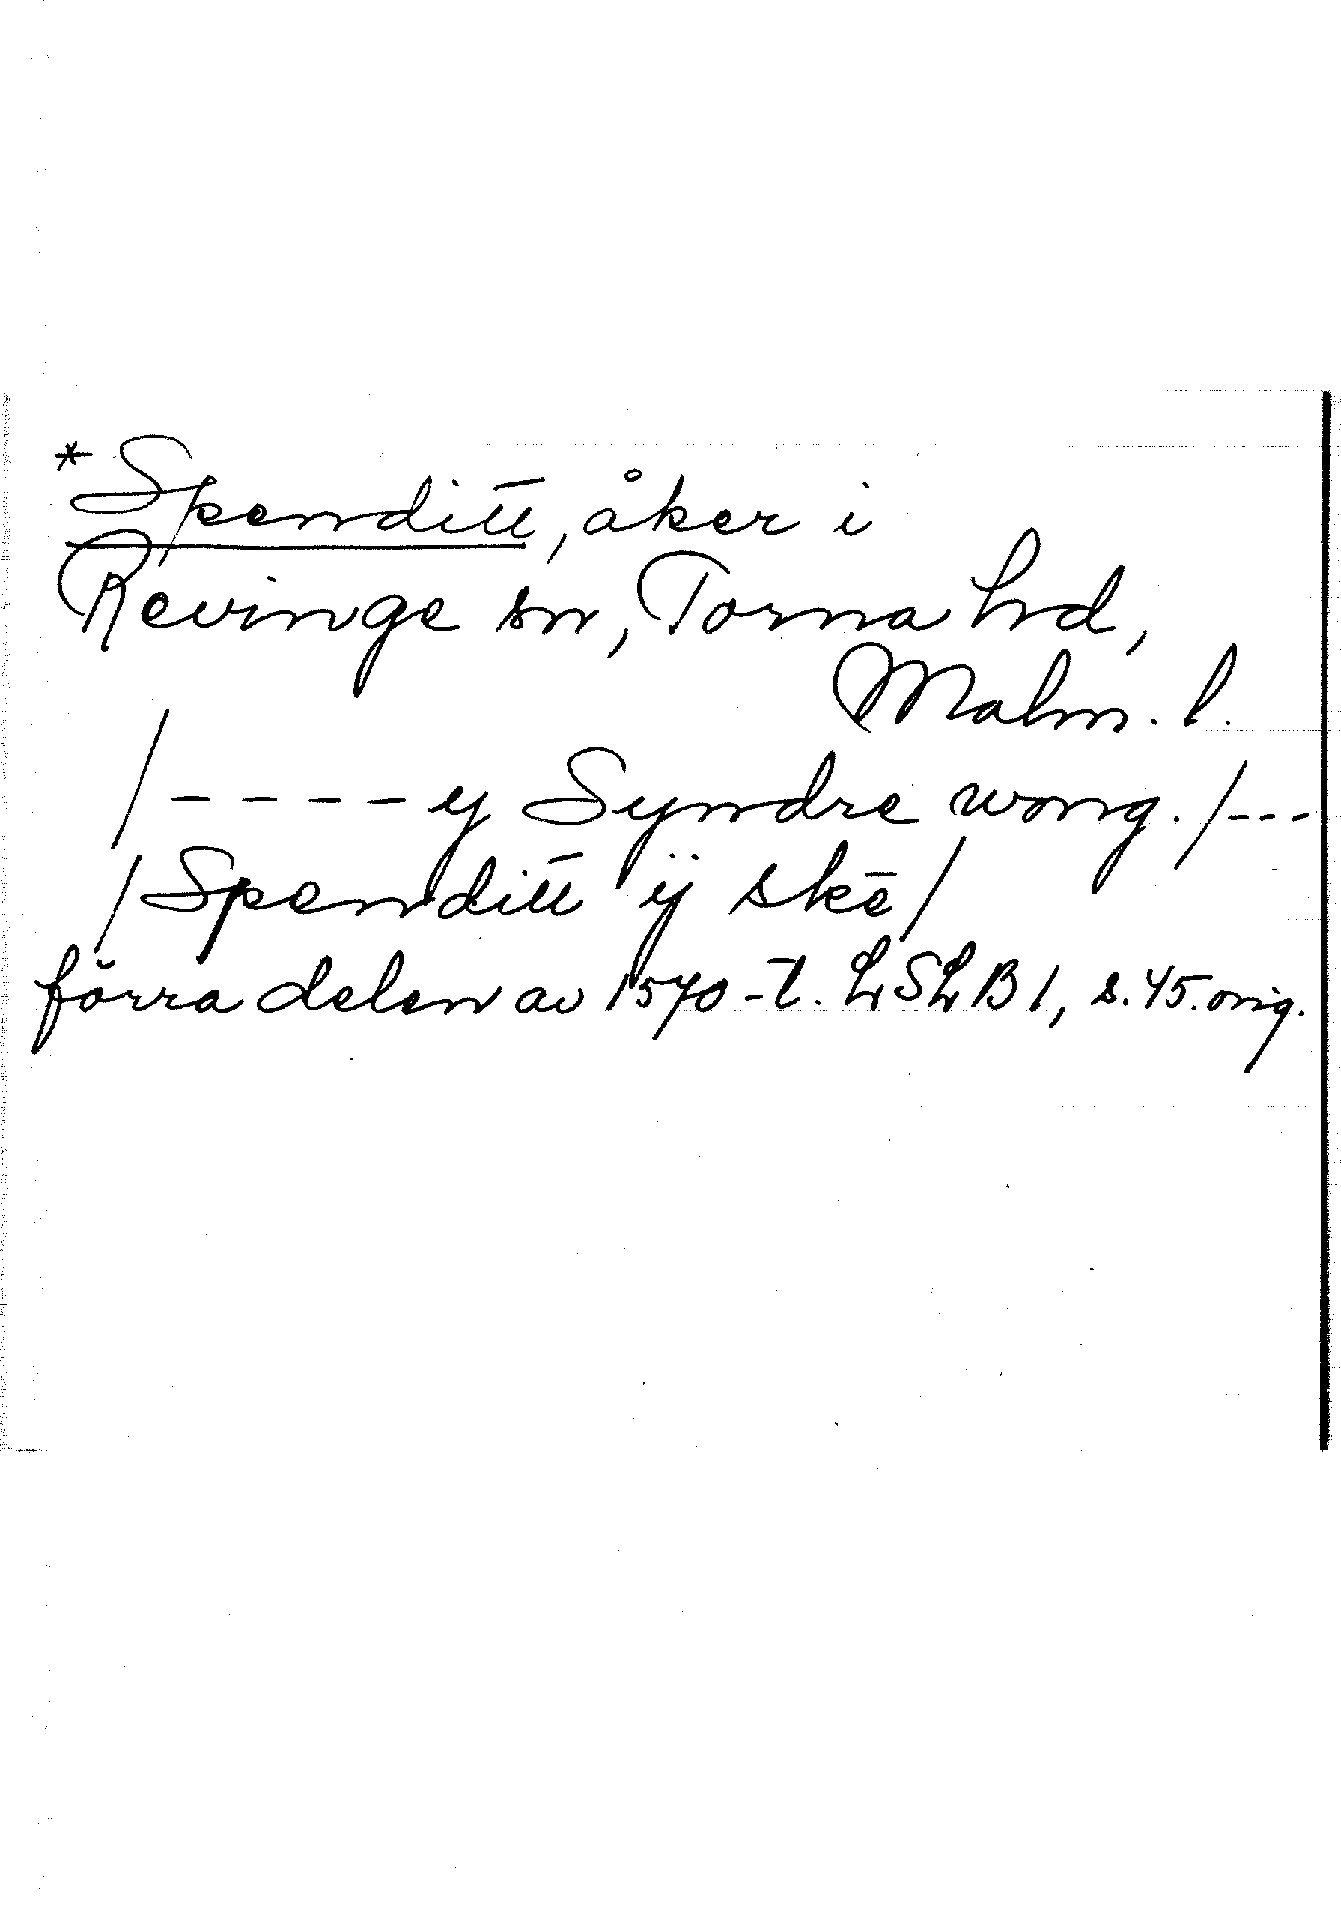 *Spenditt, åker i
Revinge sn, Torna hd,
Malm. l.
/----y Syndre wong./---
/Spenditt ij skē/
förra delen av 1570-t. LSLB1, s.45.orig.